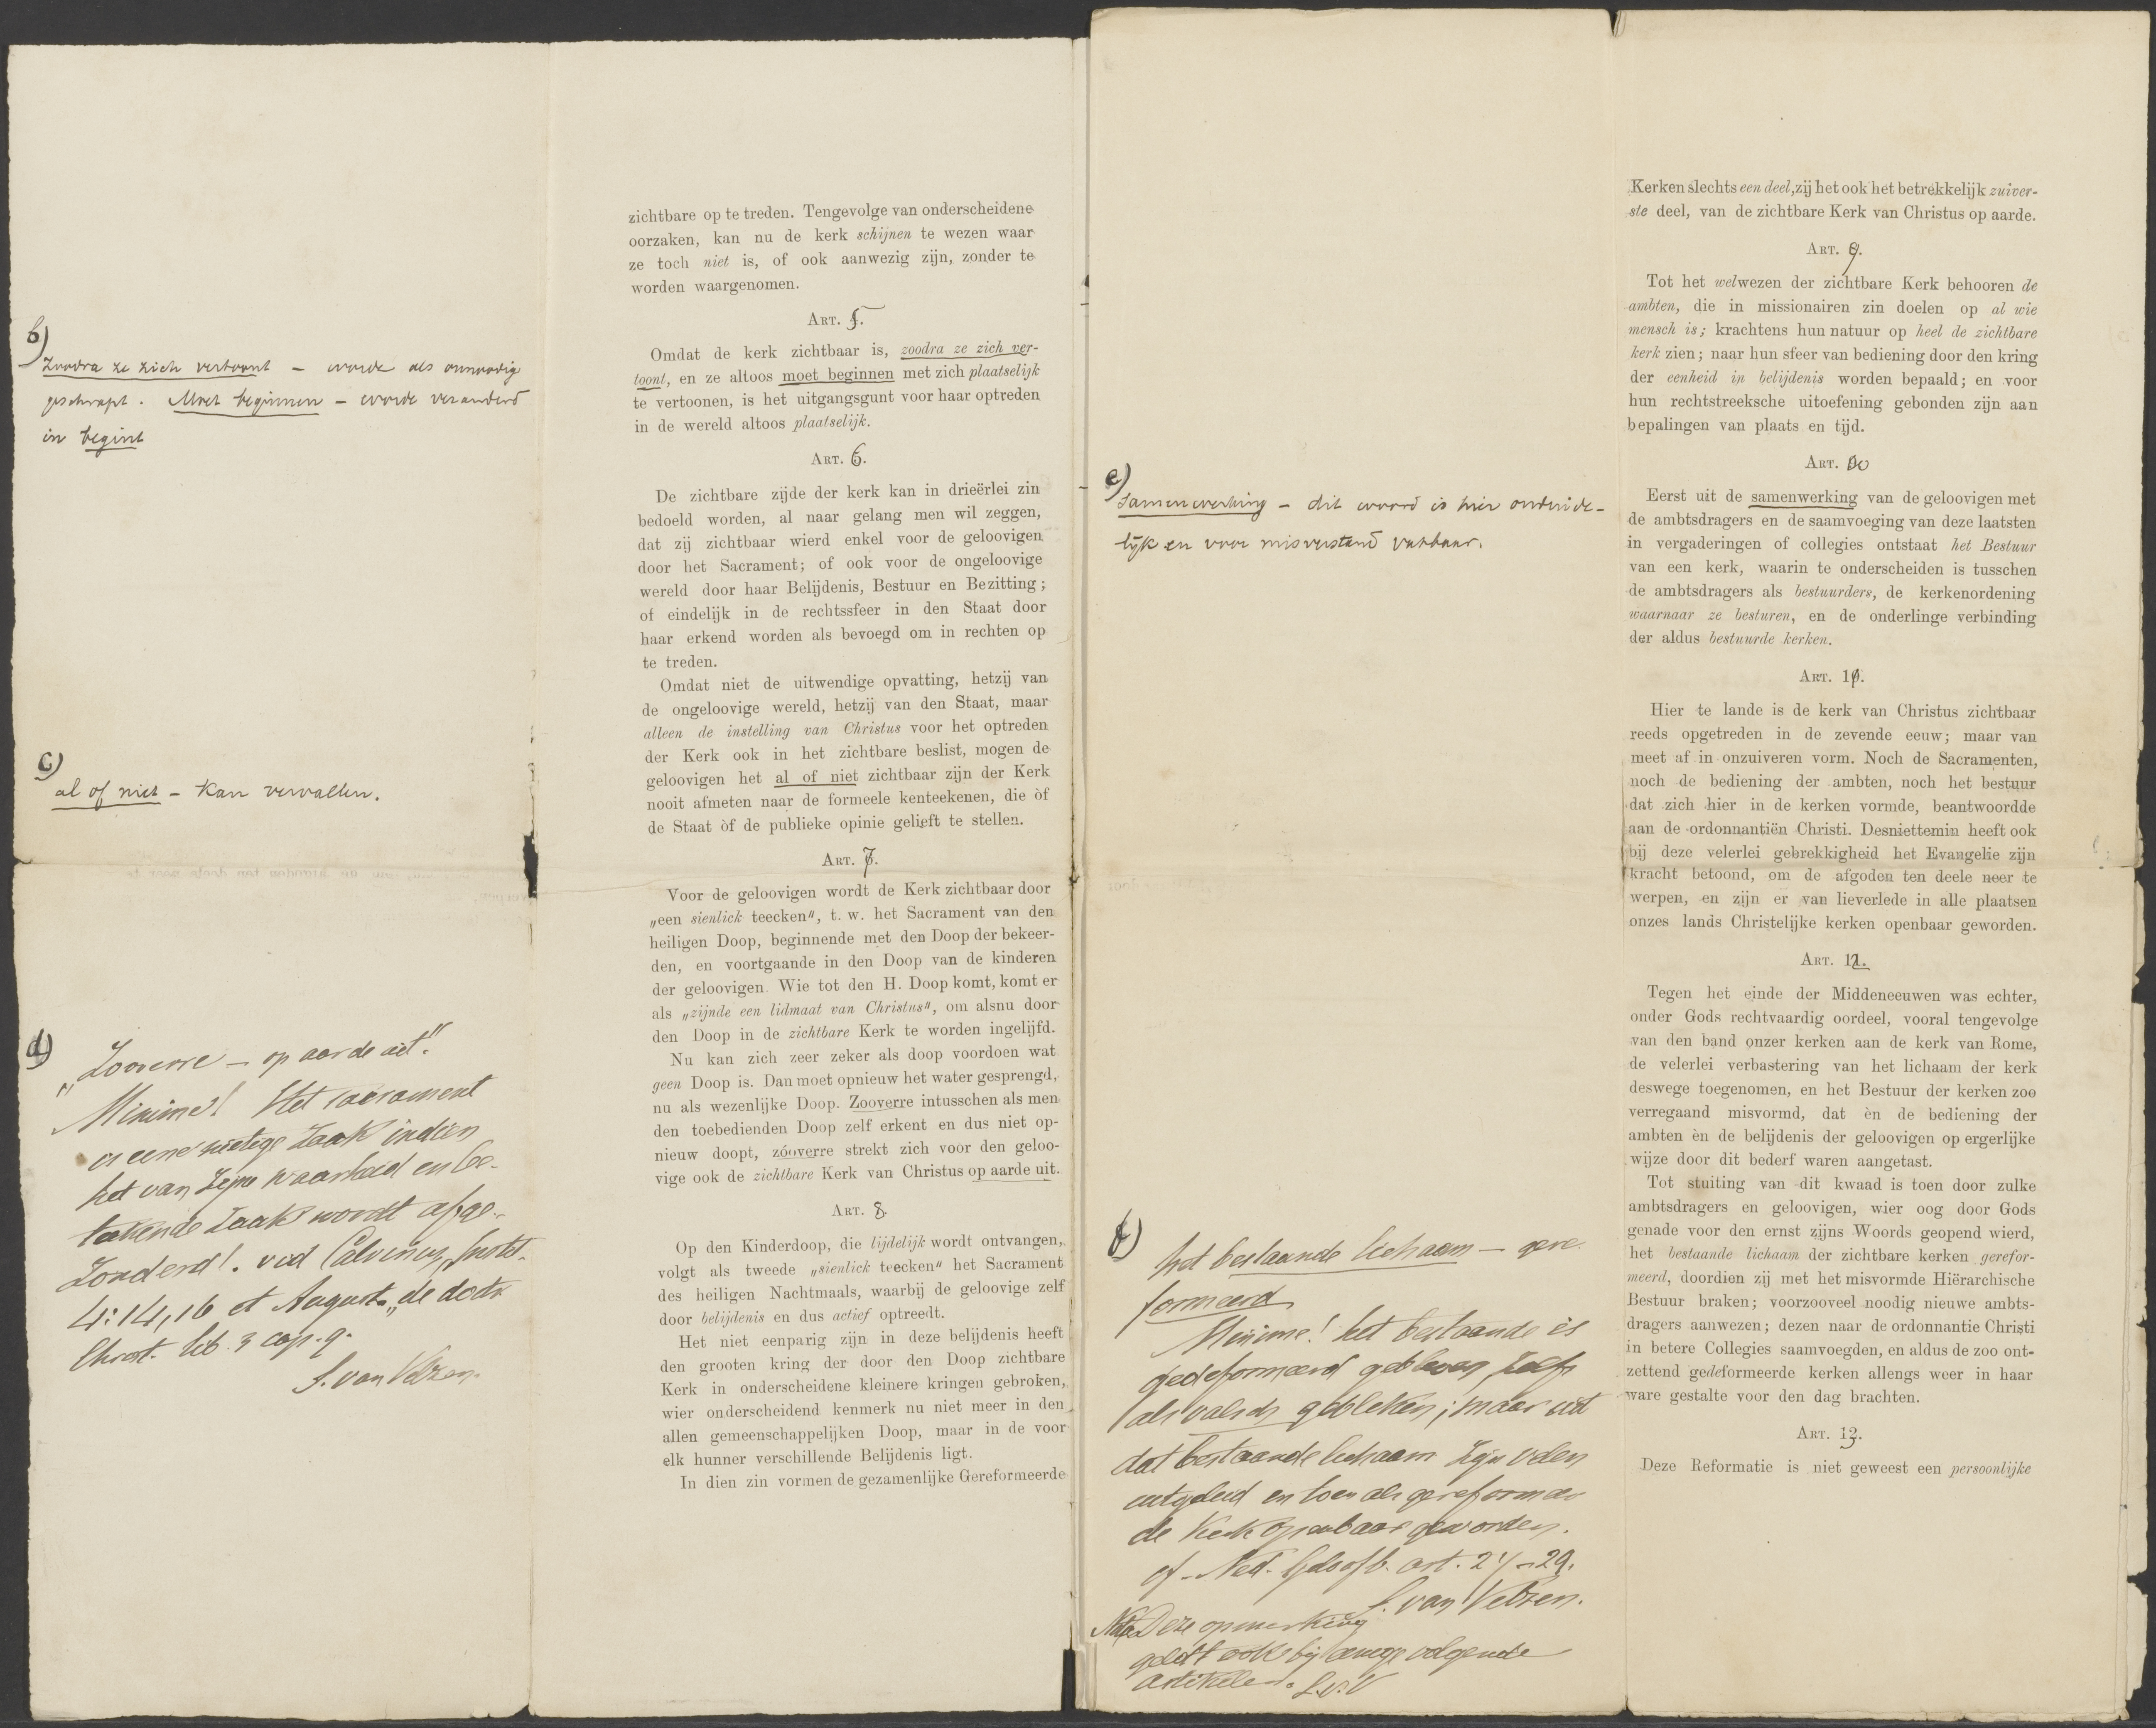 b)
Zoodra ze zich vertoont – worde als onnoodig
geschrapt. Moet beginnen – worde veranderd
in begint
c)
al of niet – kan vervallen.
d)
„Zooverre – op aarde uit."
Minime! Het sacrament
is eene nietige zaak indien
het van zijne waarheid en be-
teekende zaak wordt afge-
zonderd!. vid Calvinus, Instit.
4: 14, 16 et August. „de doctr
Christ. lib. 3 cap. 9.
S. van Velzen.
zichtbare op te treden. Tengevolge van onderscheidene
oorzaken, kan nu de kerk schijnen te wezen waar
ze toch niet is, of ook aanwezig zijn, zonder te
worden waargenomen.
ART. 5.
Omdat de kerk zichtbaar is, zoodra ze zich ver-
toont, en ze altoos moet beginnen met zich plaatselijk
te vertoonen, is het uitgangsgunt voor haar optreden
in de wereld altoos plaatselijk.
ART. 6.
De zichtbare zijde der kerk kan in drieërlei zin
bedoeld worden, al naar gelang men wil zeggen,
dat zij zichtbaar wierd enkel voor de geloovigen
door het Sacrament; of ook voor de ongeloovige
wereld door haar Belijdenis, Bestuur en Bezitting;
of eindelijk in de rechtssfeer in den Staat door
haar erkend worden als bevoegd om in rechten op
te treden.
Omdat niet de uitwendige opvatting, hetzij van
de ongeloovige wereld, hetzij van den Staat, maar
alleen de instelling van Christus voor het optreden
der Kerk ook in het zichtbare beslist, mogen de
geloovigen het al of niet zichtbaar zijn der Kerk
nooit afmeten naar de formeele kenteekenen, die òf
de Staat òf de publieke opinie gelieft te stellen.
ART. 7.
Voor de geloovigen wordt de Kerk zichtbaar door
„een sienlick teecken", t. w. het Sacrament van den
heiligen Doop, beginnende met den Doop der bekeer-
den, en voortgaande in den Doop van de kinderen
der geloovigen. Wie tot den H. Doop komt, komt er
als „zijnde een lidmaat van Christus", om alsnu door
den Doop in de zichtbare Kerk te worden ingelijfd.
Nu kan zich zeer zeker als doop voordoen wat
geen Doop is. Dan moet opnieuw het water gesprengd,
nu als wezenlijke Doop. Zooverre intusschen als men
den toebedienden Doop zelf erkent en dus niet op-
nieuw doopt, zóóverre strekt zich voor den geloo-
vige ook de zichtbare Kerk van Christus op aarde uit.
ART. 8.
Op den Kinderdoop, die lijdelijk wordt ontvangen,
volgt als tweede „sienlick teecken" het Sacrament
des heiligen Nachtmaals, waarbij de geloovige zelf
door belijdenis en dus actief optreedt.
Het niet eenparig zijn in deze belijdenis heeft
den grooten kring der door den Doop zichtbare
Kerk in onderscheidene kleinere kringen gebroken,
wier onderscheidend kenmerk nu niet meer in den
allen gemeenschappelijken Doop, maar in de voor
elk hunner verschillende Belijdenis ligt.
In dien zin vormen de gezamenlijke Gereformeerde
e)
Samenwerking – dit woord is hier onduide-
lijk en voor misverstand vatbaar.
f)
het bestaande lichaam – gere-
formeerd
Minime! het bestaande is
gedeformeerd gebleven, zelfs
als valsch gebleken; maar uit
dat bestaande lichaam zijn velen
uitgeleid en toen als gereformeer
de Kerk openbaar geworden.
cf. Ned. Geloofsb. art. 27–29.
S. van Velzen.
Nota Deze opmerking
geldt ook bij eenige volgende
artikelen. S.v.V
Kerken slechts een deel, zij het ook het betrekkelijk zuiver-
ste deel, van de zichtbare Kerk van Christus op aarde.
ART. 9.
Tot het welwezen der zichtbare Kerk behooren de
ambten, die in missionairen zin doelen op al wie
mensch is; krachtens hun natuur op heel de zichtbare
kerk zien; naar hun sfeer van bediening door den kring
der eenheid in belijdenis worden bepaald; en voor
hun rechtstreeksche uitoefening gebonden zijn aan
bepalingen van plaats en tijd.
ART. 10
Eerst uit de samenwerking van de geloovigen met
de ambtsdragers en de saamvoeging van deze laatsten
in vergaderingen of collegies ontstaat het Bestuur
van een kerk, waarin te onderscheiden is tusschen
de ambtsdragers als bestuurders, de kerkenordening
waarnaar ze besturen, en de onderlinge verbinding
der aldus bestuurde kerken.
ART. 11.
Hier te lande is de kerk van Christus zichtbaar
reeds opgetreden in de zevende eeuw; maar van
meet af in onzuiveren vorm. Noch de Sacramenten,
noch de bediening der ambten, noch het bestuur
dat zich hier in de kerken vormde, beantwoordde
aan de ordonnantiën Christi. Desniettemin heeft ook
bij deze velerlei gebrekkigheid het Evangelie zijn
kracht betoond, om de afgoden ten deele neer te
werpen, en zijn er van lieverlede in alle plaatsen
onzes lands Christelijke kerken openbaar geworden.
ART. 12.
Tegen het einde der Middeneeuwen was echter,
onder Gods rechtvaardig oordeel, vooral tengevolge
van den band onzer kerken aan de kerk van Rome,
de velerlei verbastering van het lichaam der kerk
deswege toegenomen, en het Bestuur der kerken zoo
verregaand misvormd, dat èn de bediening der
ambten èn de belijdenis der geloovigen op ergerlijke
wijze door dit bederf waren aangetast.
Tot stuiting van dit kwaad is toen door zulke
ambtsdragers en geloovigen, wier oog door Gods
genade voor den ernst zijns Woords geopend wierd,
het bestaande lichaam der zichtbare kerken gerefor-
meerd, doordien zij met het misvormde Hiërarchische
Bestuur braken; voorzooveel noodig nieuwe ambts-
dragers aanwezen; dezen naar de ordonnantie Christi
in betere Collegies saamvoegden, en aldus de zoo ont-
zettend gedeformeerde kerken allengs weer in haar
ware gestalte voor den dag brachten.
ART. 13.
Deze Reformatie is niet geweest een persoonlijke